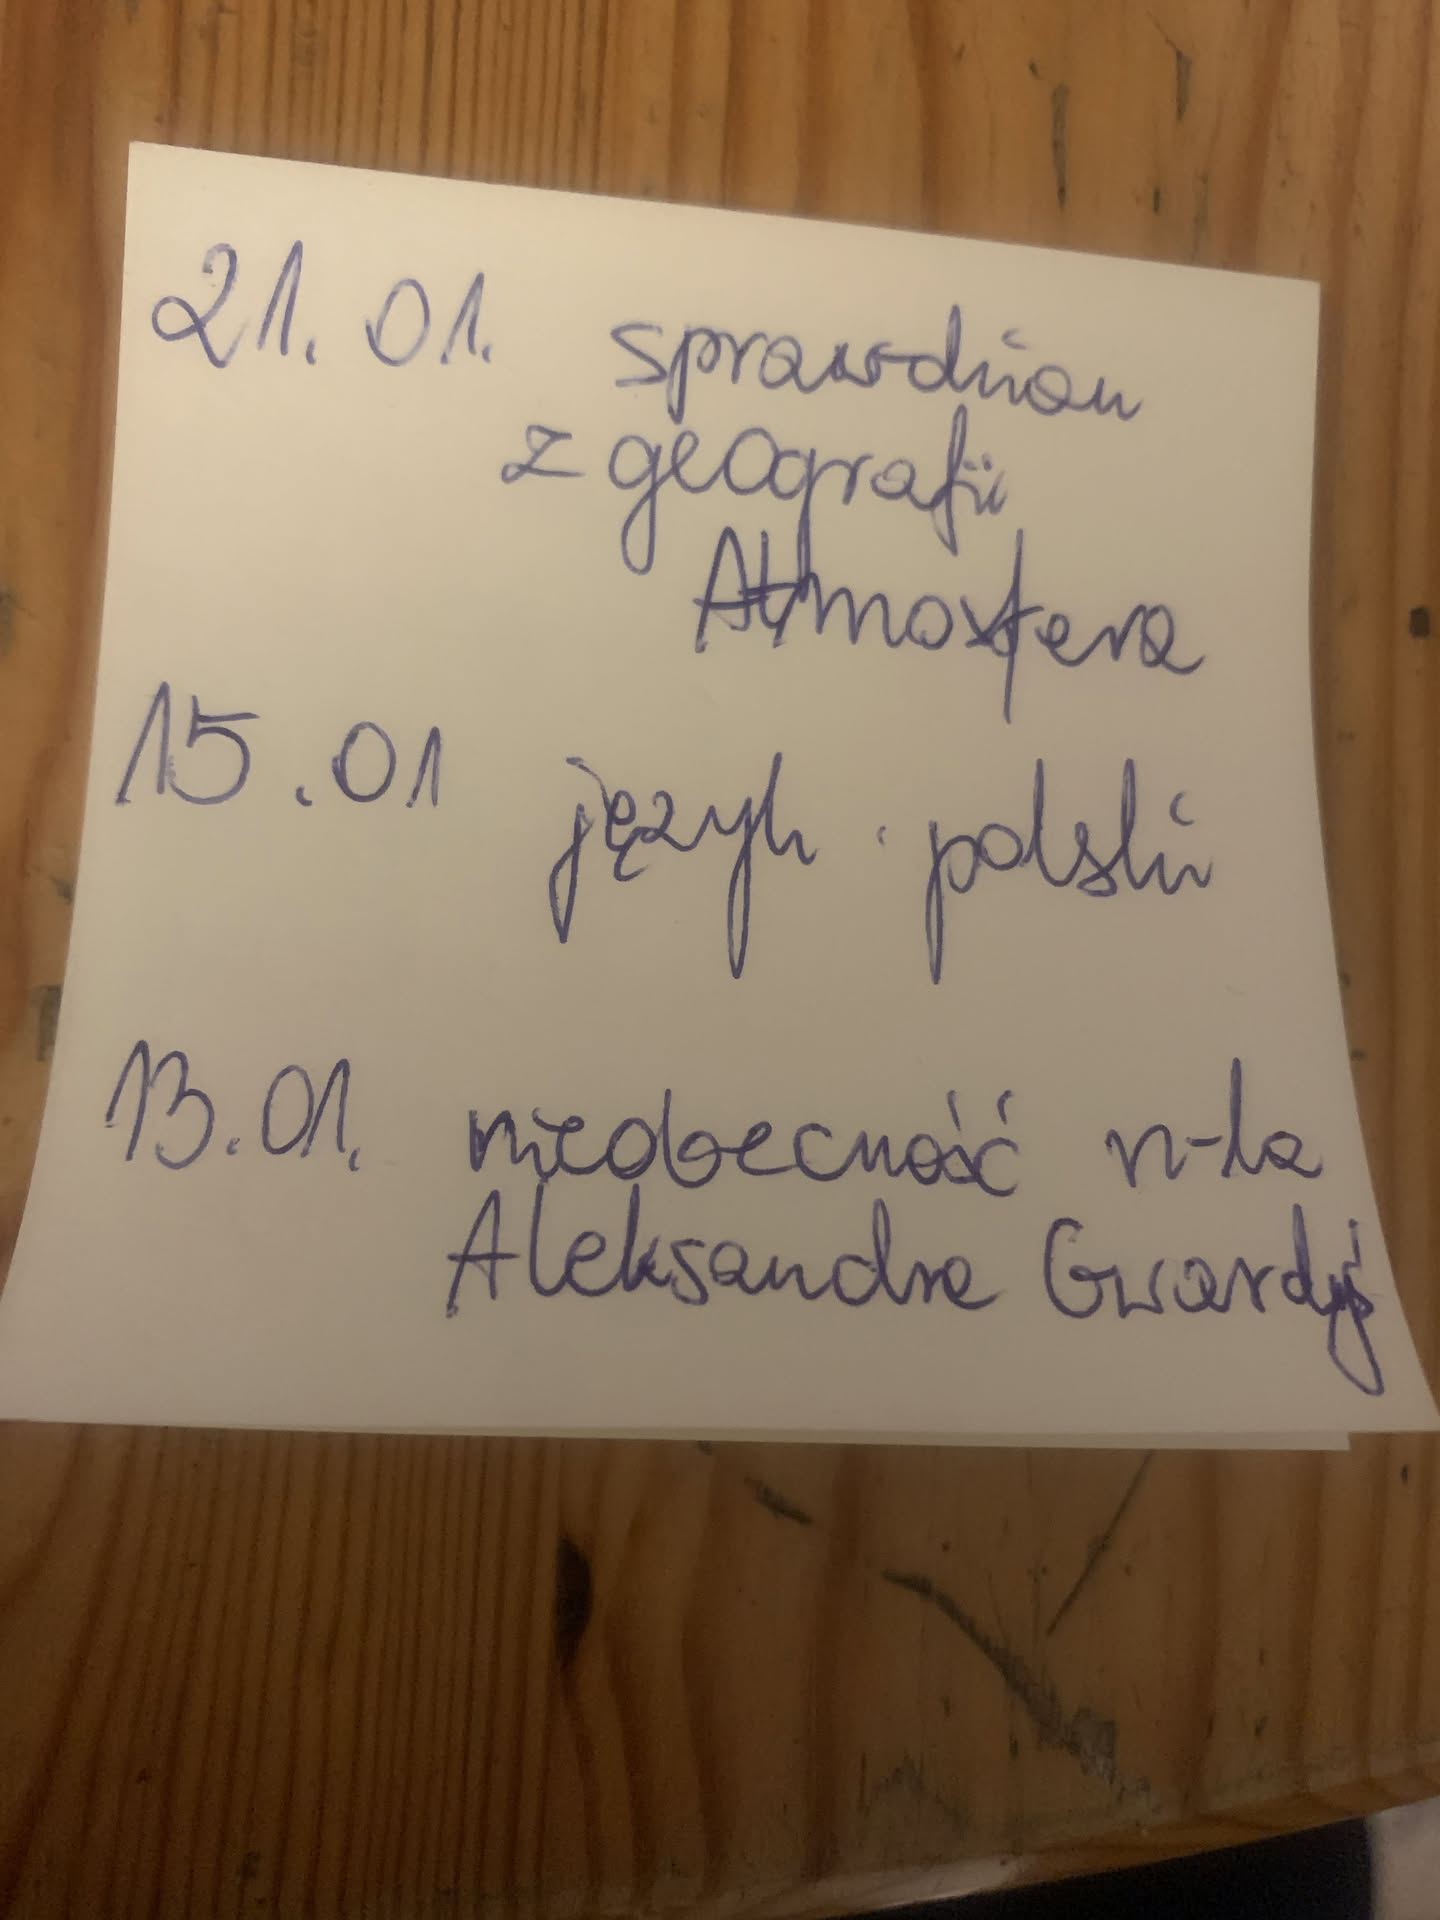 21.01. sprawdzian
z geografii
Atmosfera
15.01 język polski
13.01. nieobecność n-la
Aleksandra